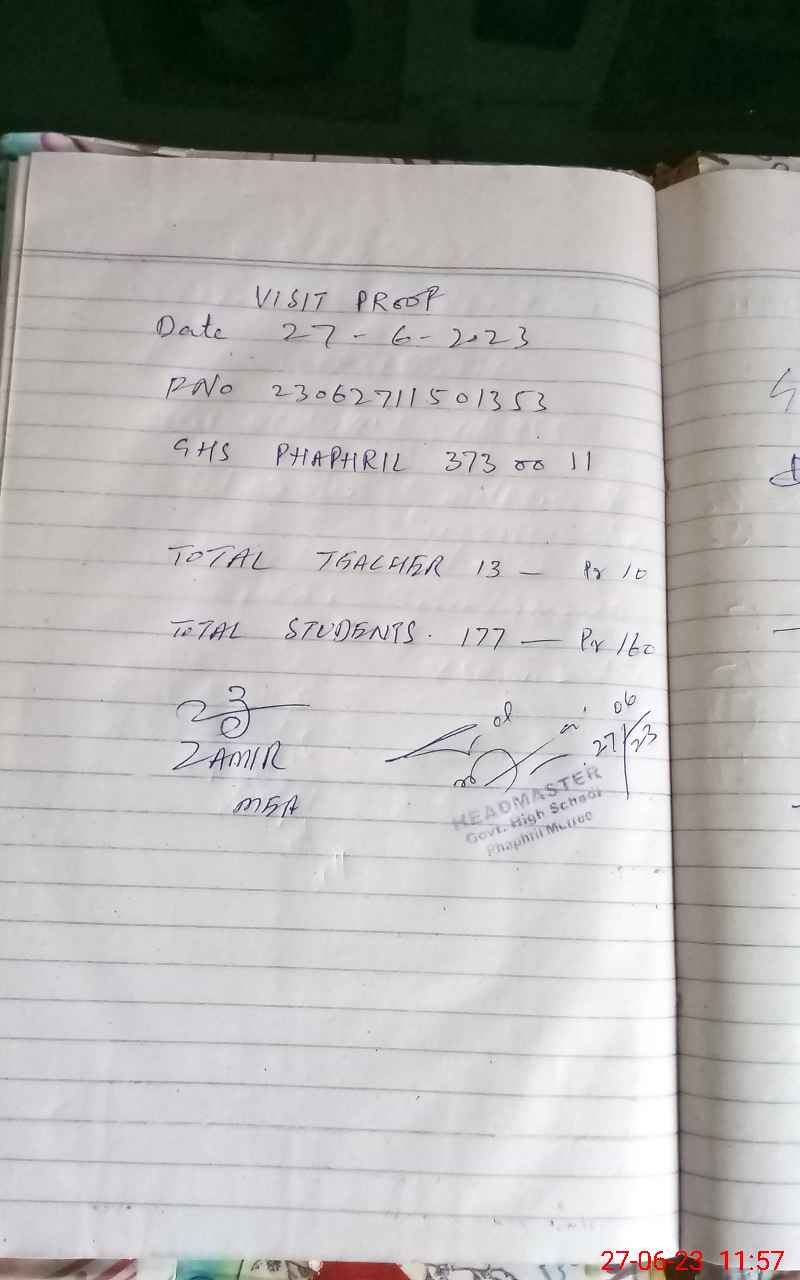 VISIT PROOF
Date 27-6-2023
P.No 23062711501353
GHS PHAPHRIL 373 00 11
TOTAL TEACHER 13 — Pr 10
TOTAL STUDENTS. 177 — Pr 160
ZAMIR
MEA
27/06/23
HEADMASTER
Govt. High School
Phaphril
27-06-23 11:57